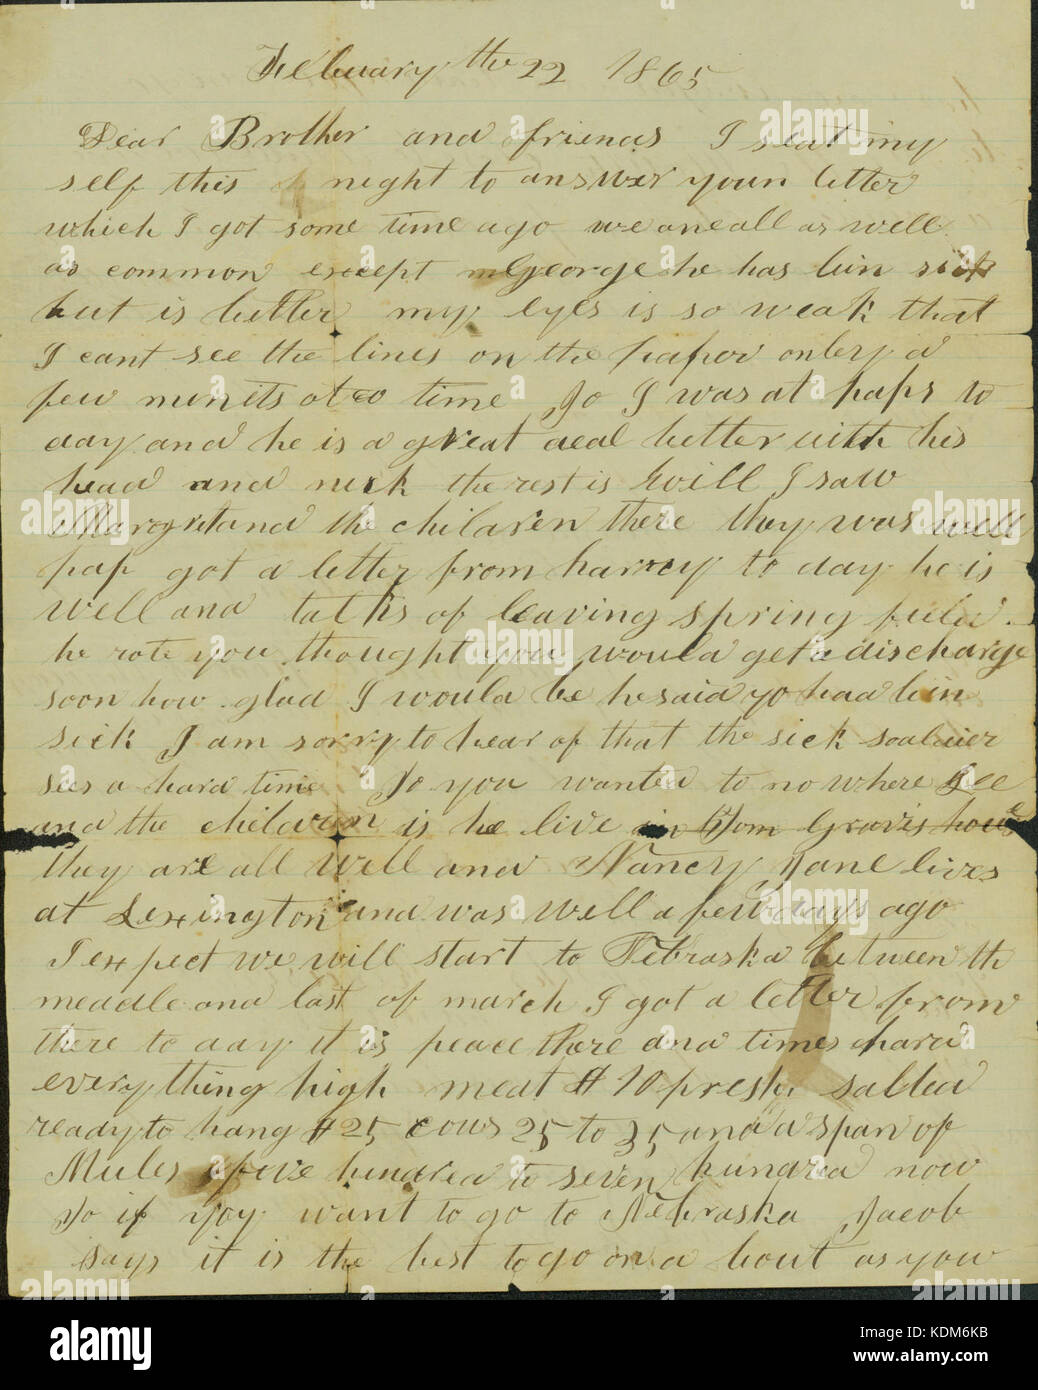 February the 22 1865
Dear Brother and friends I seat my
self this night to answer youn letter
which I got some time ago we are all as well
as common except George he has bin sick
but is better my eyes is so weak that
I cant see the lines on the paper onley a
few minits at time Jo I was at paps to
day and he is a great deal better with his
head and neck the rest is well I saw
Margret and the children there they was well
pap got a letter from harvey to day he is
well and talks of leaving spring feild
he rote you thought you would get a discharge
soon how glad I would be he said yo had bin
sick I am sorry to hear of that the sick soaldier
sees a hard time Jo you wanted to no where Lee
and the children is he live in Tom Graves house
they are all well and Nancy Jane lives
at Lexington and was well a few days ago
I expect we will start to Nebraska between the
meddle and last of march I got a letter from
there to day it is peace there and times hard
everything high meat $10 salted
ready to hang $25 cows 25 to 35 and a span of
Mules five hundred to seven hundred now
Jo if yoy want to go to Nebraska Jacob
says it is the best to go on a bout as you
alamy stock photo
KDM6KB
www.alamy.com